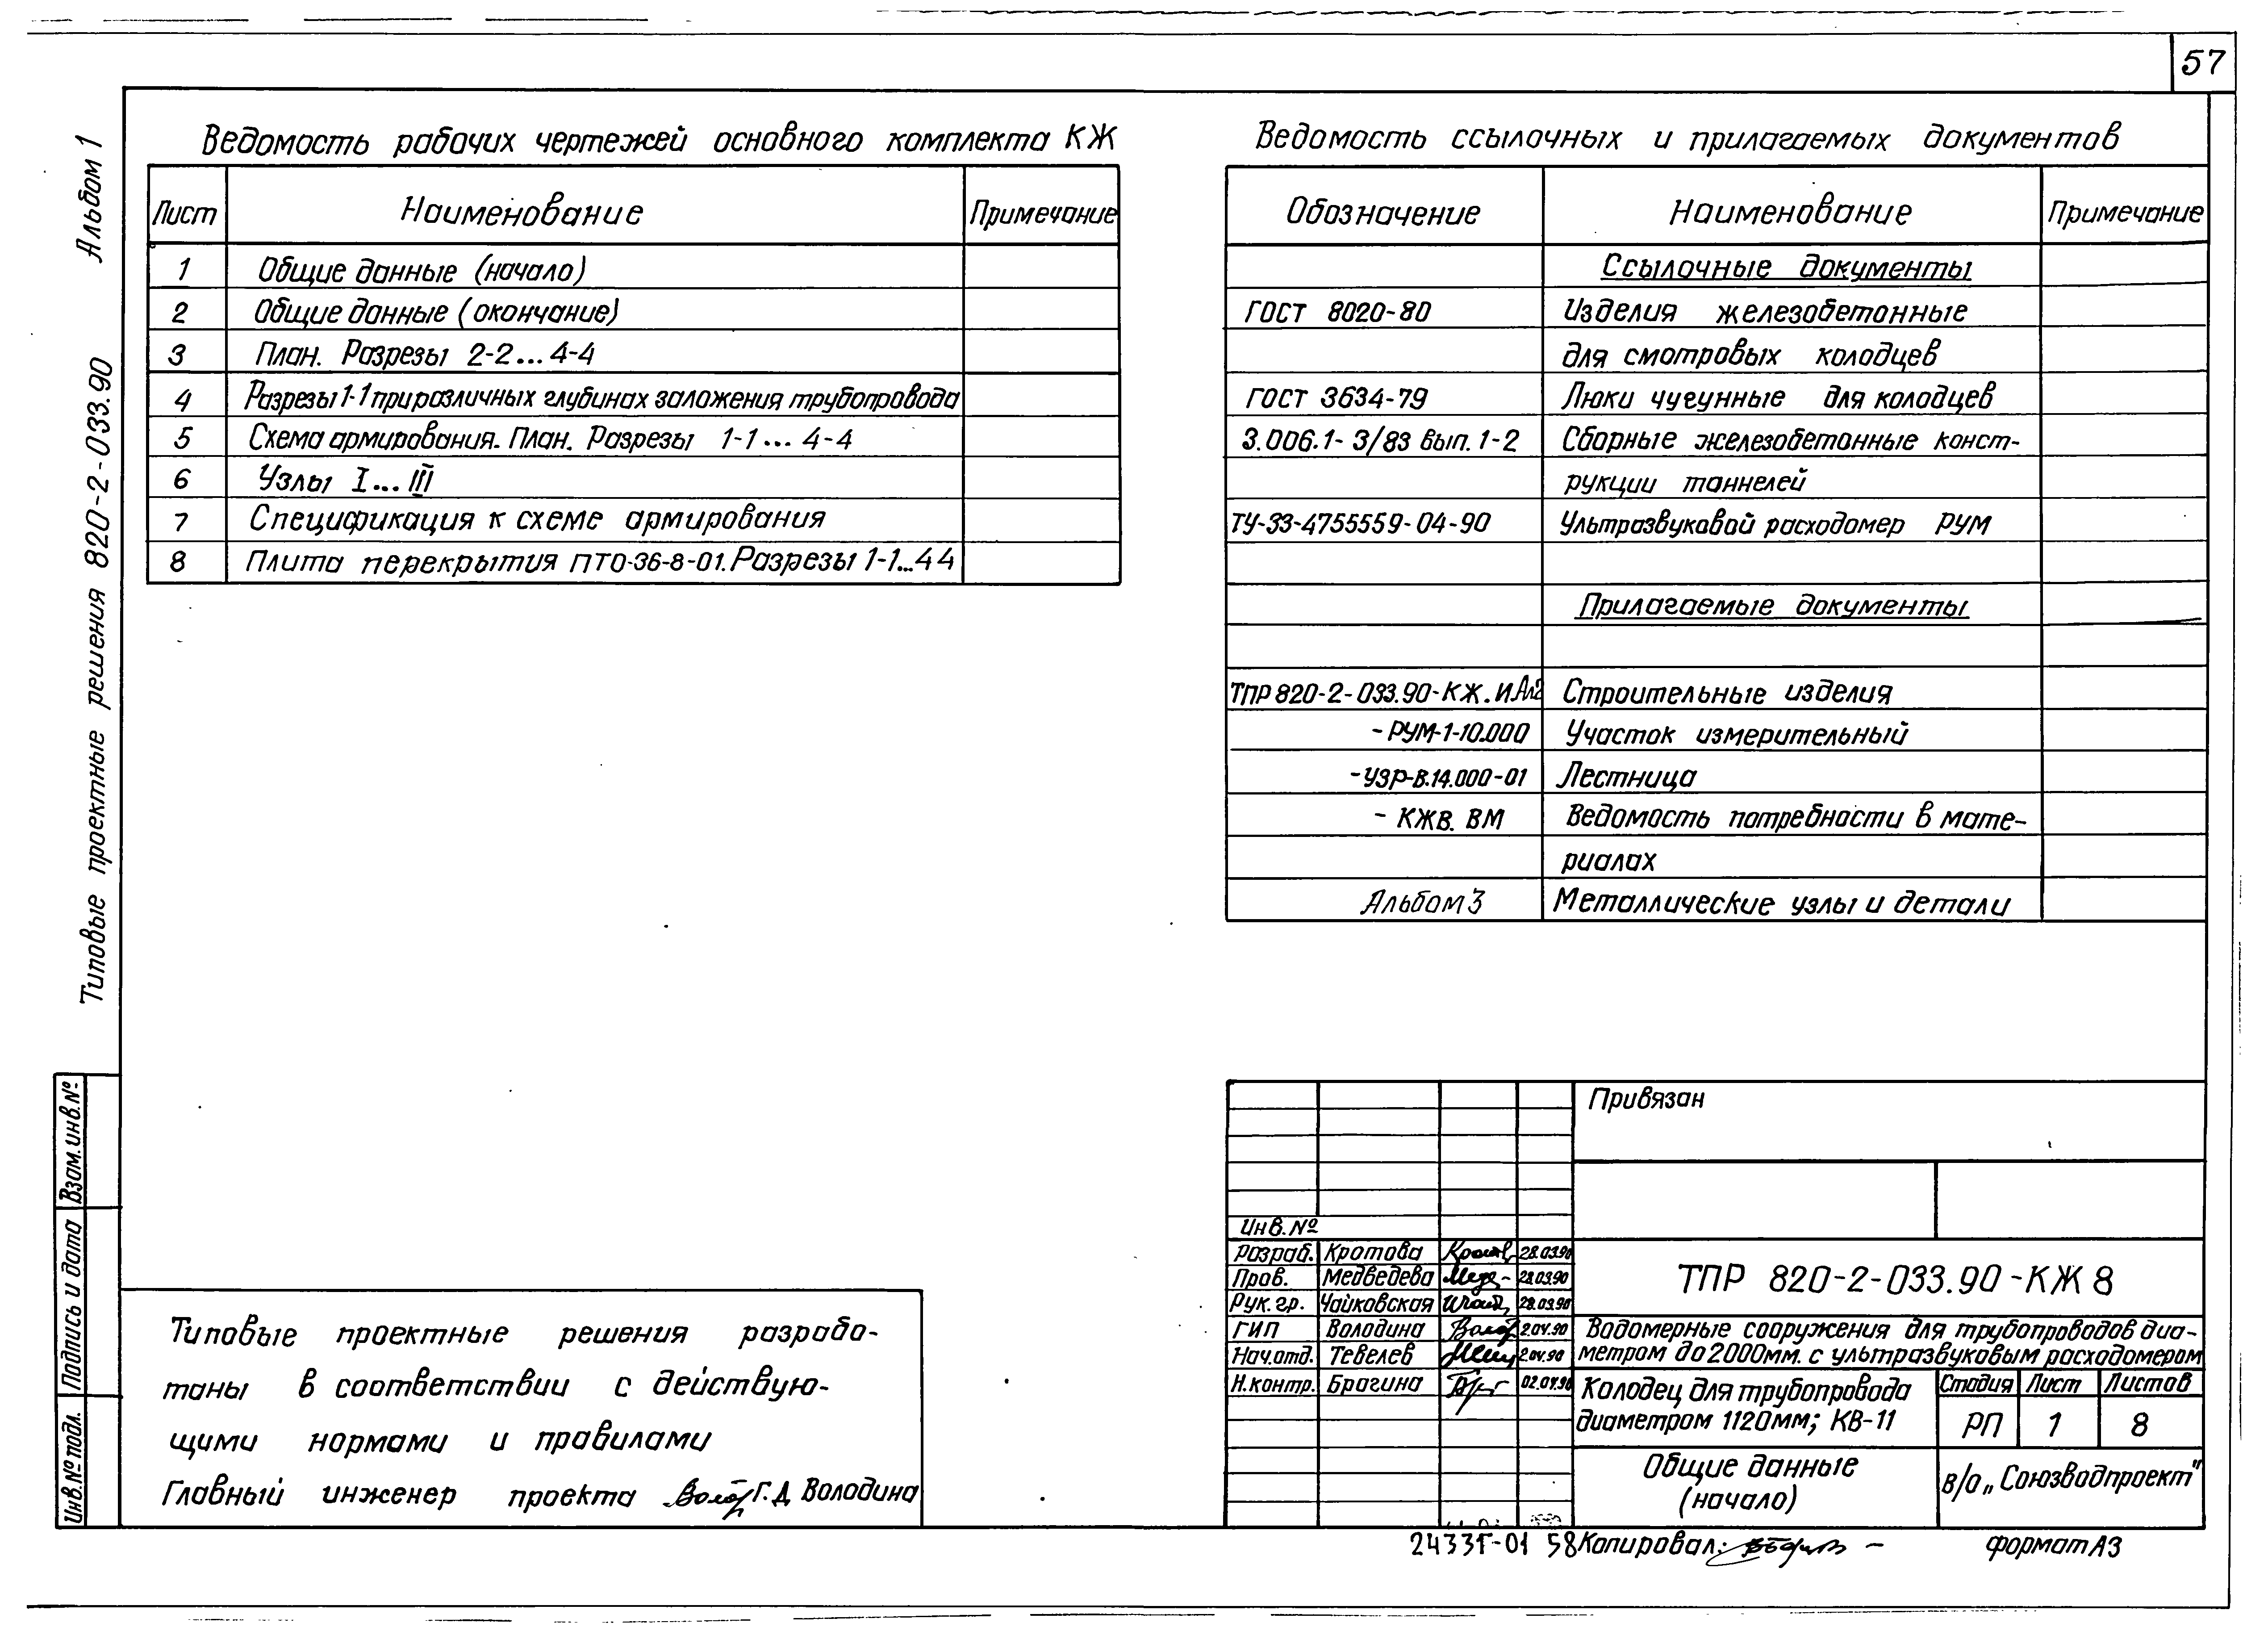 57
Альбом 1
Типовые проектные решения 820-2-033.90
Взам.инв.№
Подпись и дата
Инв.№ подл.
Ведомость рабочих чертежей основного комплекта КЖ
Лист Наименование Примечание
1 Общие данные (начало)
2 Общие данные (окончание)
3 План. Разрезы 2-2...4-4
4 Разрезы 1-1 при различных глубинах заложения трубопровода
5 Схема армирования. План. Разрезы 1-1... 4-4
6 Узлы I...III
7 Спецификация к схеме армирования
8 Плита перекрытия ПТО-36-8-01. Разрезы 1-1...4 4
Ведомость ссылочных и прилагаемых документов
Обозначение Наименование Примечание
Ссылочные документы
ГОСТ 8020-80 Изделия железобетонные
для смотровых колодцев
ГОСТ 3634-79 Люки чугунные для колодцев
3.006.1-3/83 вып. 1-2 Сборные железобетонные конст-
рукции таннелей
ТУ-33-4755559-04-90 Ультразвуковой расходомер РУМ
Прилагаемые документы
ТПР 820-2-033.90-КЖ.И Ал2 Строительные изделия
-РУМ-1-10.000 Участок измерительный
-УЗР-В.14.000-01 Лестница
- КЖВ. ВМ Ведомость потребности в мате-
риалах
Альбом 3 Металлические узлы и детали
Типовые проектные решения разрабо-
таны в соответствии с действую-
щими нормами и правилами
Главный инженер проекта Г.Д Володина
Привязан
Инв.№
Разраб. Кротова 28.03.90
Пров. Медведева 28.03.90
Рук. гр. Чайковская 28.03.90
ГИП Володина 2.04.90
Нач.отд. Тевелев 2.04.90
Н.контр. Брагина 02.04.90
ТПР 820-2-033.90-КЖ 8
Водомерные сооружения для трубопроводов диа-
метром до 2000мм. с ультразвуковым расходомером
Колодец для трубопровода
диаметром 1120мм; КВ-11
Стадия Лист Листов
РП 1 8
Общие данные
(начало)
в/о „Союзводпроект"
24331-01 58 Копировал: формат А3